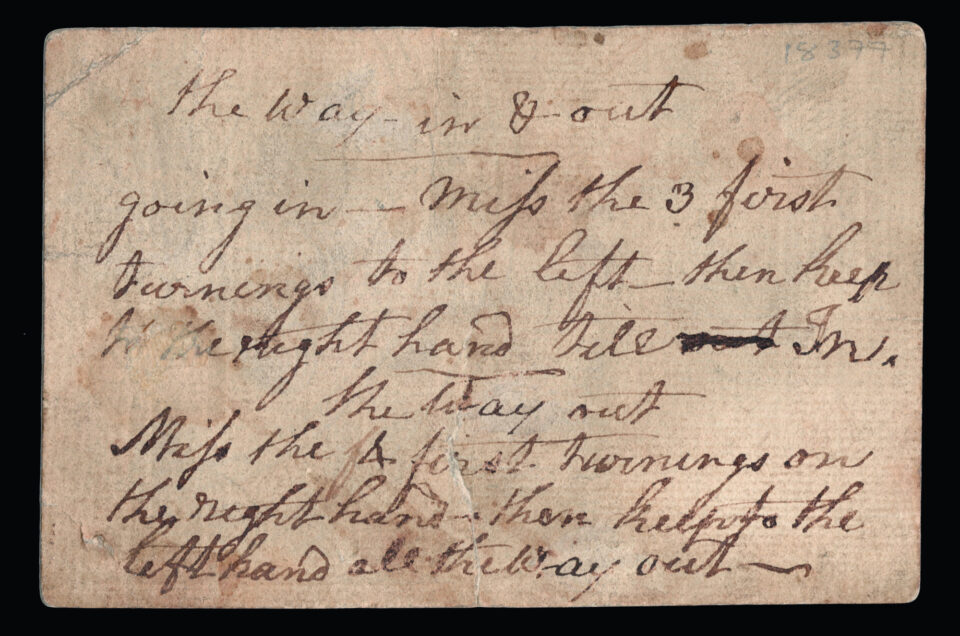 18377
the way in & out
going in — Miſs the 3 first
turnings to the left — then keep
to the right hand till In.
the way out
Miſs the first turnings on
the right hand — then keep to the
left hand all the way out —